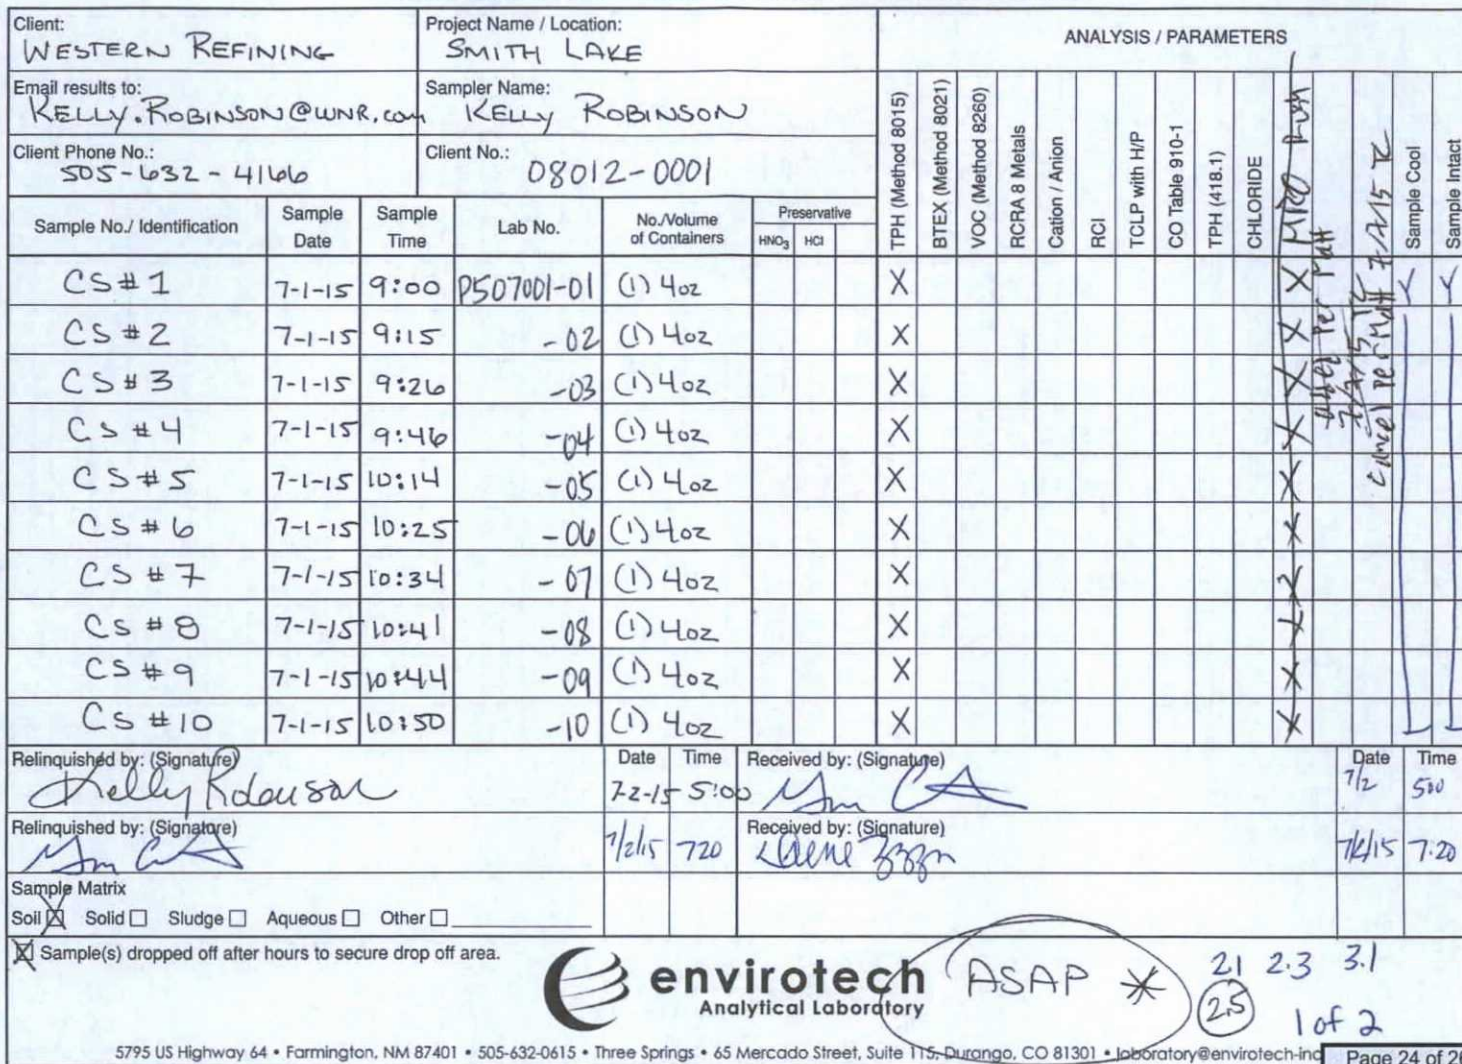 Client:
WESTERN REFINING
Project Name / Location:
SMITH LAKE
ANALYSIS / PARAMETERS
Email results to:
KELLY.ROBINSON@WNR.com
Sampler Name:
KELLY ROBINSON
Client Phone No.:
505-632-4166
Client No.:
08012-0001
Sample No./ Identification
Sample Date
Sample Time
Lab No.
No./Volume of Containers
Preservative
HNO3 HCl
TPH (Method 8015)
BTEX (Method 8021)
VOC (Method 8260)
RCRA 8 Metals
Cation / Anion
RCI
TCLP with H/P
CO Table 910-1
TPH (418.1)
CHLORIDE
added per Matt
7/2/15
cancel per Matt 7/2/15
Sample Cool
Sample Intact
CS #1 7-1-15 9:00 P507001-01 (1) 4oz X X ✓ ✓
CS #2 7-1-15 9:15 -02 (1) 4oz X X
CS #3 7-1-15 9:26 -03 (1) 4oz X X
CS #4 7-1-15 9:46 -04 (1) 4oz X X
CS #5 7-1-15 10:14 -05 (1) 4oz X X
CS #6 7-1-15 10:25 -06 (1) 4oz X X
CS #7 7-1-15 10:34 -07 (1) 4oz X X
CS #8 7-1-15 10:41 -08 (1) 4oz X X
CS #9 7-1-15 10:44 -09 (1) 4oz X X
CS #10 7-1-15 10:50 -10 (1) 4oz X X
Relinquished by: (Signature)
Kelly Robinson
Date Time
7-2-15 5:00
Received by: (Signature)
Date Time
7/2 500
Relinquished by: (Signature)
7/2/15 720
Received by: (Signature)
7/2/15 7:20
Sample Matrix
Soil X Solid Sludge Aqueous Other
X Sample(s) dropped off after hours to secure drop off area.
envirotech
Analytical Laboratory
ASAP *
2.1 2.3 3.1
2.5
1 of 2
5795 US Highway 64 • Farmington, NM 87401 • 505-632-0615 • Three Springs • 65 Mercado Street, Suite 115, Durango, CO 81301 • laboratory@envirotech-inc
Page 24 of 26